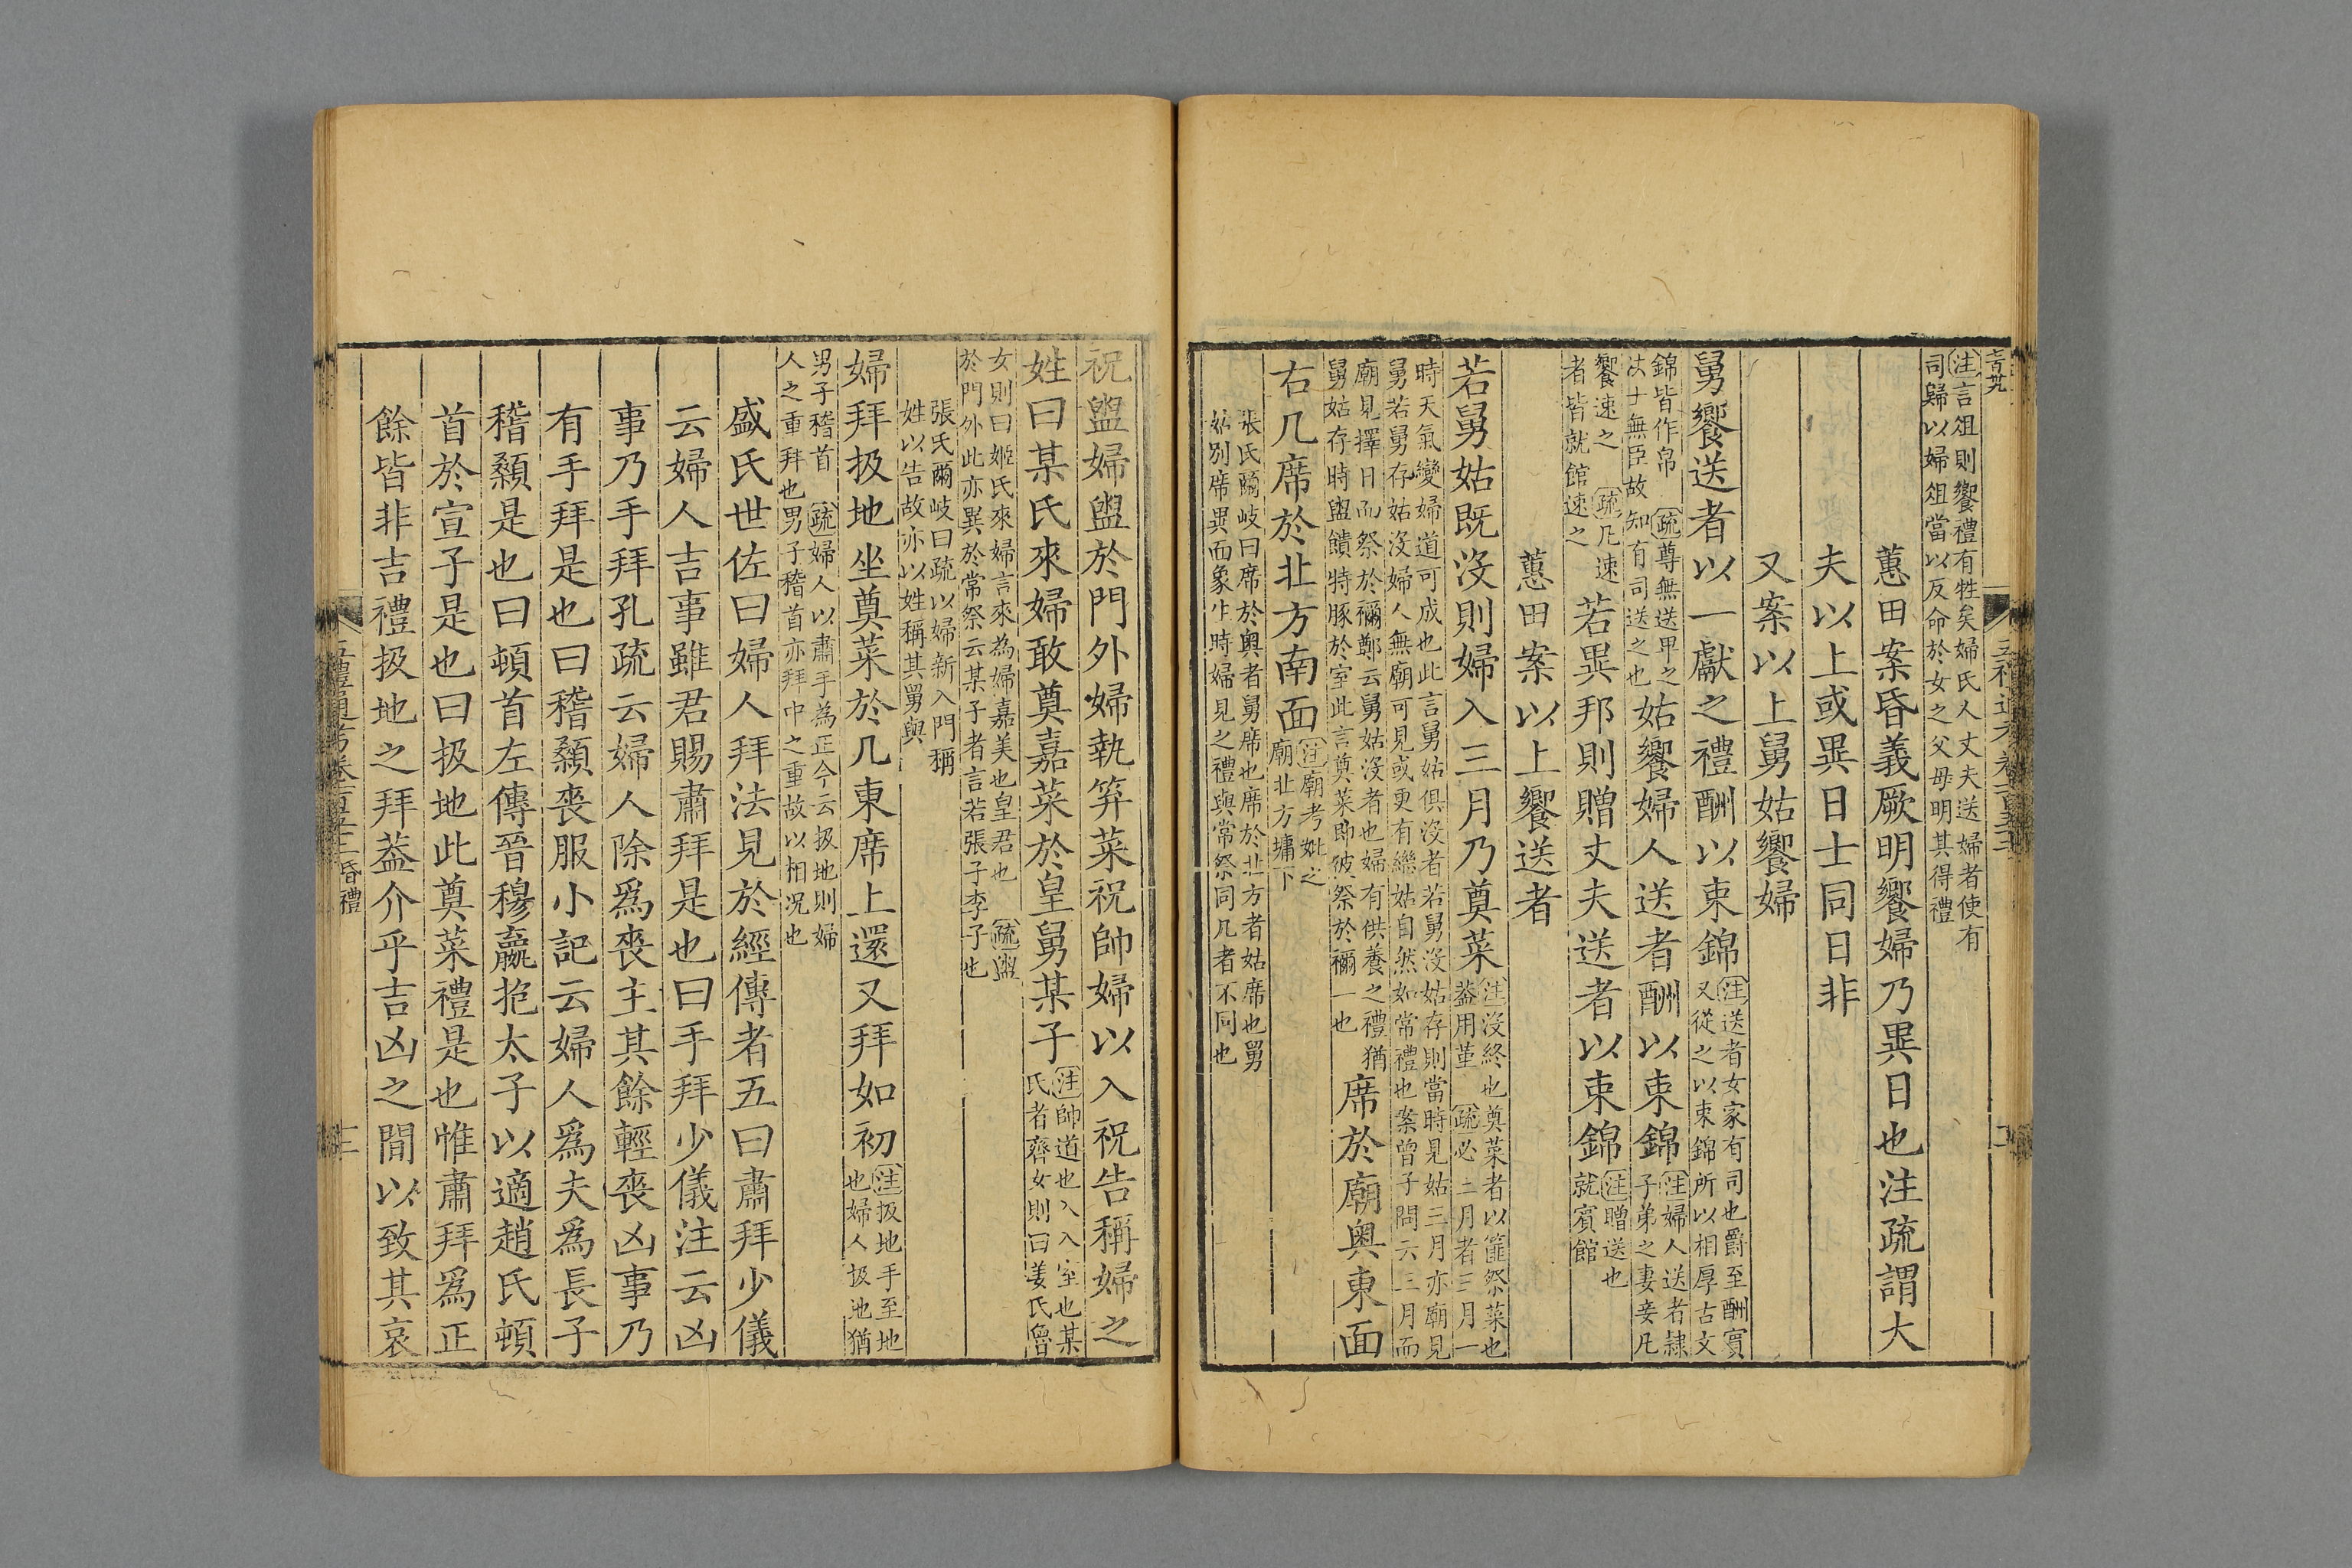 注言俎則饗禮有牲矣婦氏人丈夫送婦者使有
司歸以婦俎當以反命於女之父母明其得禮
蕙田案昏義厥明饗婦乃異日也注疏謂大
夫以上或異日士同日非
又案以上舅姑饗婦
舅饗送者以一獻之禮酬以束錦
注送者女家有司也爵至酬賓
又從之以束錦所以相厚古文
錦皆作帛 疏尊無送卑之
法士無臣故知有司送之也
姑饗婦人送者酬以束錦
注婦人送者隸
子弟之妻妾凡
饗速之 疏凡速
者皆就館速之
若異邦則贈丈夫送者以束錦
注贈送也
就賓館
蕙田案以上饗送者
若舅姑既沒則婦入三月乃奠菜
注沒終也奠菜者以篚祭菜也
葢用堇 疏必三月者三月一
時天氣變婦道可成也此言舅姑俱沒者若舅沒姑存則當時見姑三月亦廟見
舅若舅存姑沒婦人無廟可見或更有繼姑自然如常禮也案曾子問云三月而
廟見擇日而祭於禰鄭云舅姑沒者也婦有供養之禮猶
舅姑存時盥饋特豚於室此言奠菜即彼祭於禰一也
席於廟奧東面
右几席於北方南面
注廟考妣之
廟北方墉下
張氏爾岐曰席於奧者舅席也席於北方者姑席也舅
姑別席異面象生時婦見之禮與常祭同几者不同也
祝盥婦盥於門外婦執笲菜祝帥婦以入祝告稱婦之
姓曰某氏來婦敢奠嘉菜於皇舅某子
注帥道也入入室也某
氏者齊女則曰姜氏魯
女則曰姬氏來婦言來為婦嘉美也皇君也 疏盥
於門外此亦異於常祭云某子者言若張子李子也
張氏爾岐曰疏以婦新入門稱
姓以告故亦以姓稱其舅與
婦拜扱地坐奠菜於几東席上還又拜如初
注扱地手至地
也婦人扱地猶
男子稽首 疏婦人以肅手為正今云扱地則婦
人之重拜也男子稽首亦拜中之重故以相況也
盛氏世佐曰婦人拜法見於經傳者五曰肅拜少儀
云婦人吉事雖君賜肅拜是也曰手拜少儀注云凶
事乃手拜孔疏云婦人除爲喪主其餘輕喪凶事乃
有手拜是也曰稽顙喪服小記云婦人爲夫爲長子
稽顙是也曰頓首左傳晉穆嬴抱太子以適趙氏頓
首於宣子是也曰扱地此奠菜禮是也惟肅拜爲正
餘皆非吉禮扱地之拜葢介乎吉凶之間以致其哀
昏禮